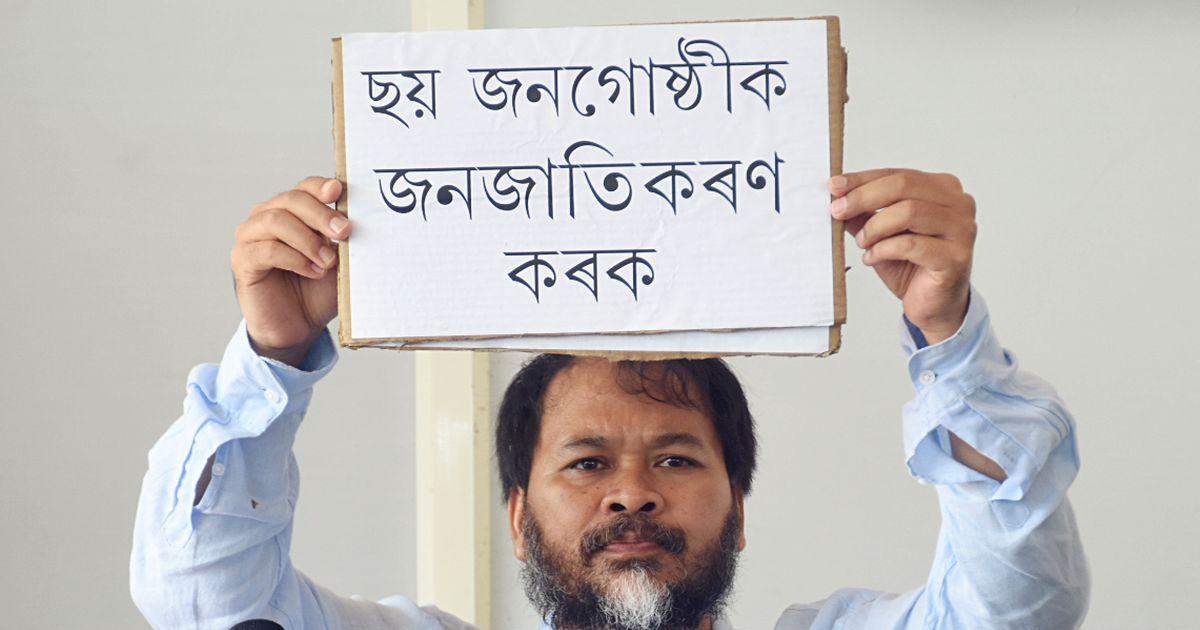 ছয় জনগোষ্ঠীক
জনজাতিকৰণ
কৰক